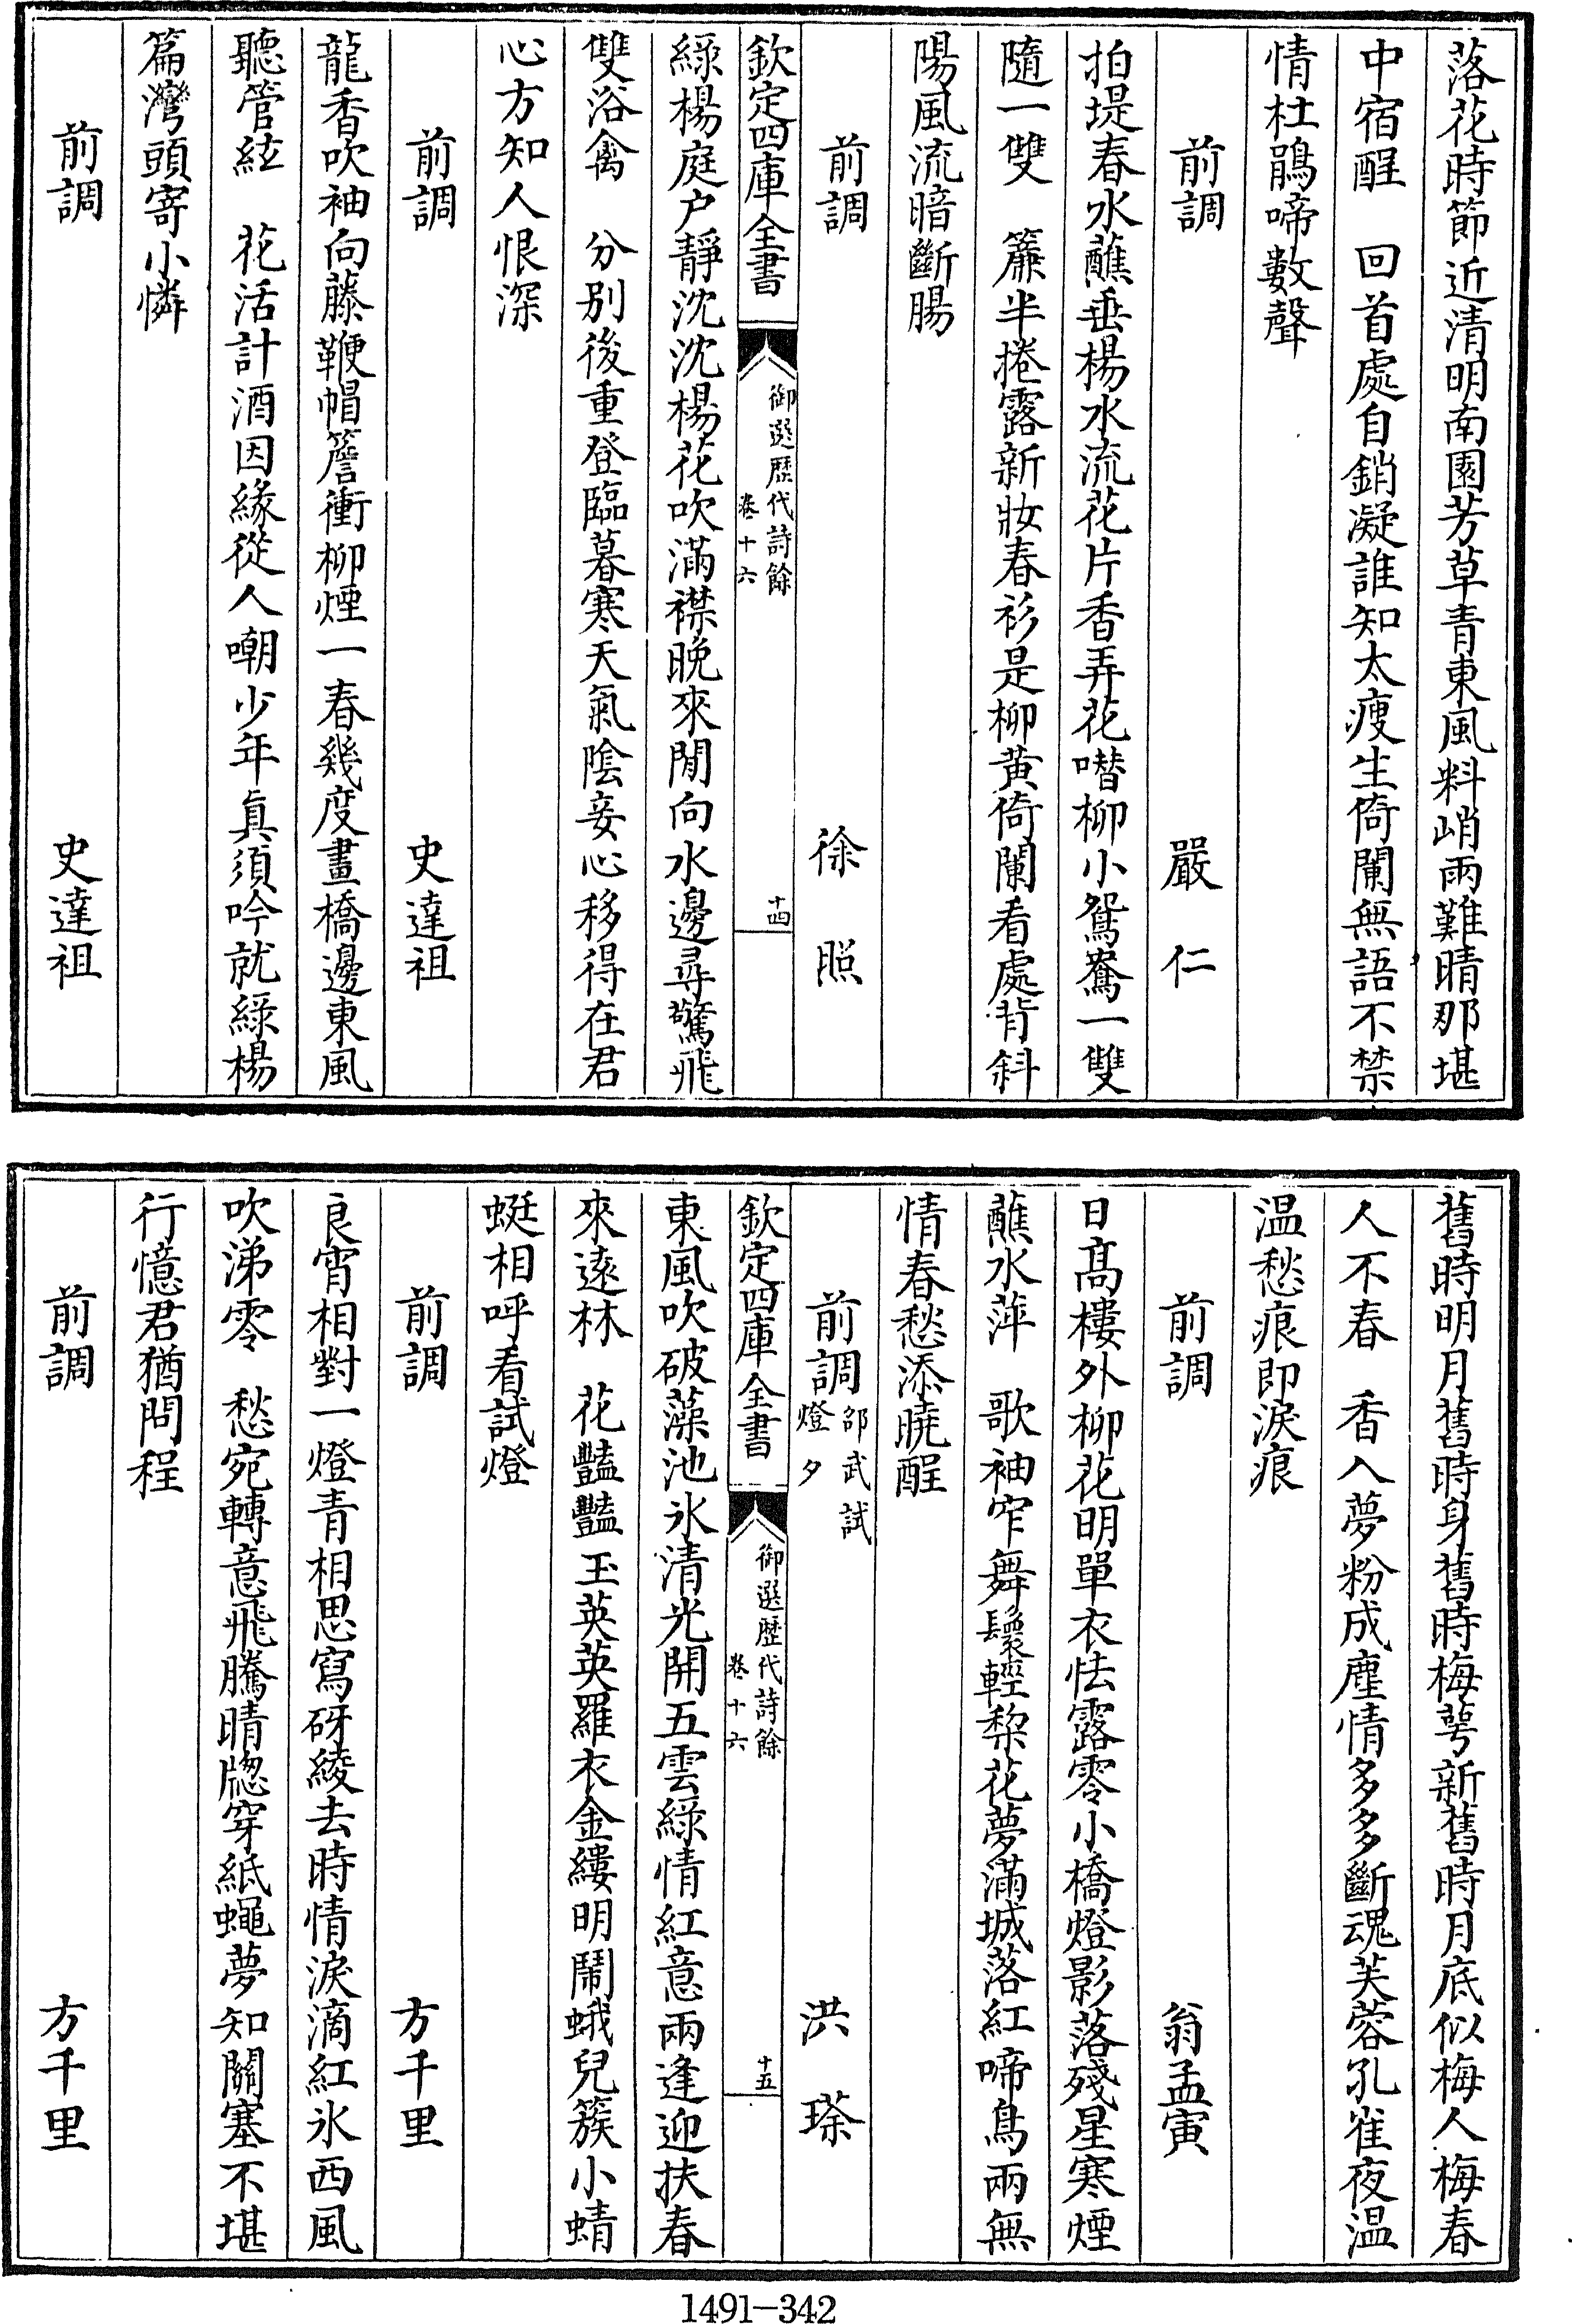 落花時節近清明南園芳草青東風料峭雨難晴那堪
中宿酲　回首處自銷凝誰知太瘦生倚闌無語不禁
情杜鵑啼數聲
前調　嚴仁
拍堤春水蘸垂楊水流花片香弄花噆柳小鴛鴦一雙
隨一雙　簾半捲露新妝春衫是柳黃倚闌看處背斜
陽風流暗斷腸
前調　徐照
欽定四庫全書　御選歷代詩餘　卷十六　十四
綠楊庭户靜沈沈楊花吹滿襟晚來閒向水邊尋驚飛
雙浴禽　分別後重登臨暮寒天氣陰妾心移得在君
心方知人恨深
前調　史達祖
龍香吹袖向藤鞭帽簷衝柳煙一春幾度畫橋邊東風
聽管絃　花活計酒因緣從人嘲少年真須吟就綠楊
篇灣頭寄小憐
前調　史達祖
舊時明月舊時身舊時梅萼新舊時月底似梅人梅春
人不春　香入夢粉成塵情多多斷魂芙蓉孔雀夜温
温愁痕即淚痕
前調　翁孟寅
日高樓外柳花明單衣怯露零小橋燈影落殘星寒煙
蘸水萍　歌袖窄舞鬟輕棃花夢滿城落紅啼鳥兩無
情春愁添曉酲
前調　邵武試燈夕　洪瑹
欽定四庫全書　御選歷代詩餘　卷十六　十五
東風吹破藻池氷清光開五雲綠情紅意兩逢迎扶春
來遠林　花豔豔玉英英羅衣金縷明鬧蛾兒簇小蜻
蜓相呼看試燈
前調　方千里
良宵相對一燈青相思寫砑綾去時情淚滴紅氷西風
吹涕零　愁宛轉意飛騰晴牕穿紙蠅夢知關塞不堪
行憶君猶問程
前調　方千里
1491-342